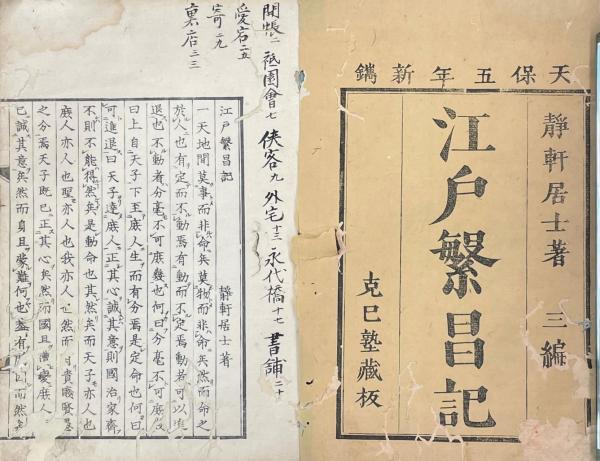 天保五年新鐫
靜軒居士著　三編
江戶繁昌記
克己塾藏板
開帳二　祇園會七　俠客九　外宅十三　永代橋十七　書舗二十
愛宕二五
寄二九
裏店三三
江戶繁昌記
靜軒居士著
一天地間莫事而非命矣莫物而非命矣然而命之
於人也有定而不動焉有動而不定焉動者可以進
退也不動者分毫不可庶幾也何曰分毫不可庶幾
曰上自天子下至庶人生而有分焉是定命也何曰
可進退曰天子達庶人正其心誠其意則國治家齊
不則不能得然矣是動命也其然矣而天子亦人也
庶人亦人也聖亦人也我亦人也然而有貴賤賢愚
之分焉天子既已正其心矣然而國且遭變庶人
已誠其意矣然而身且
難何也